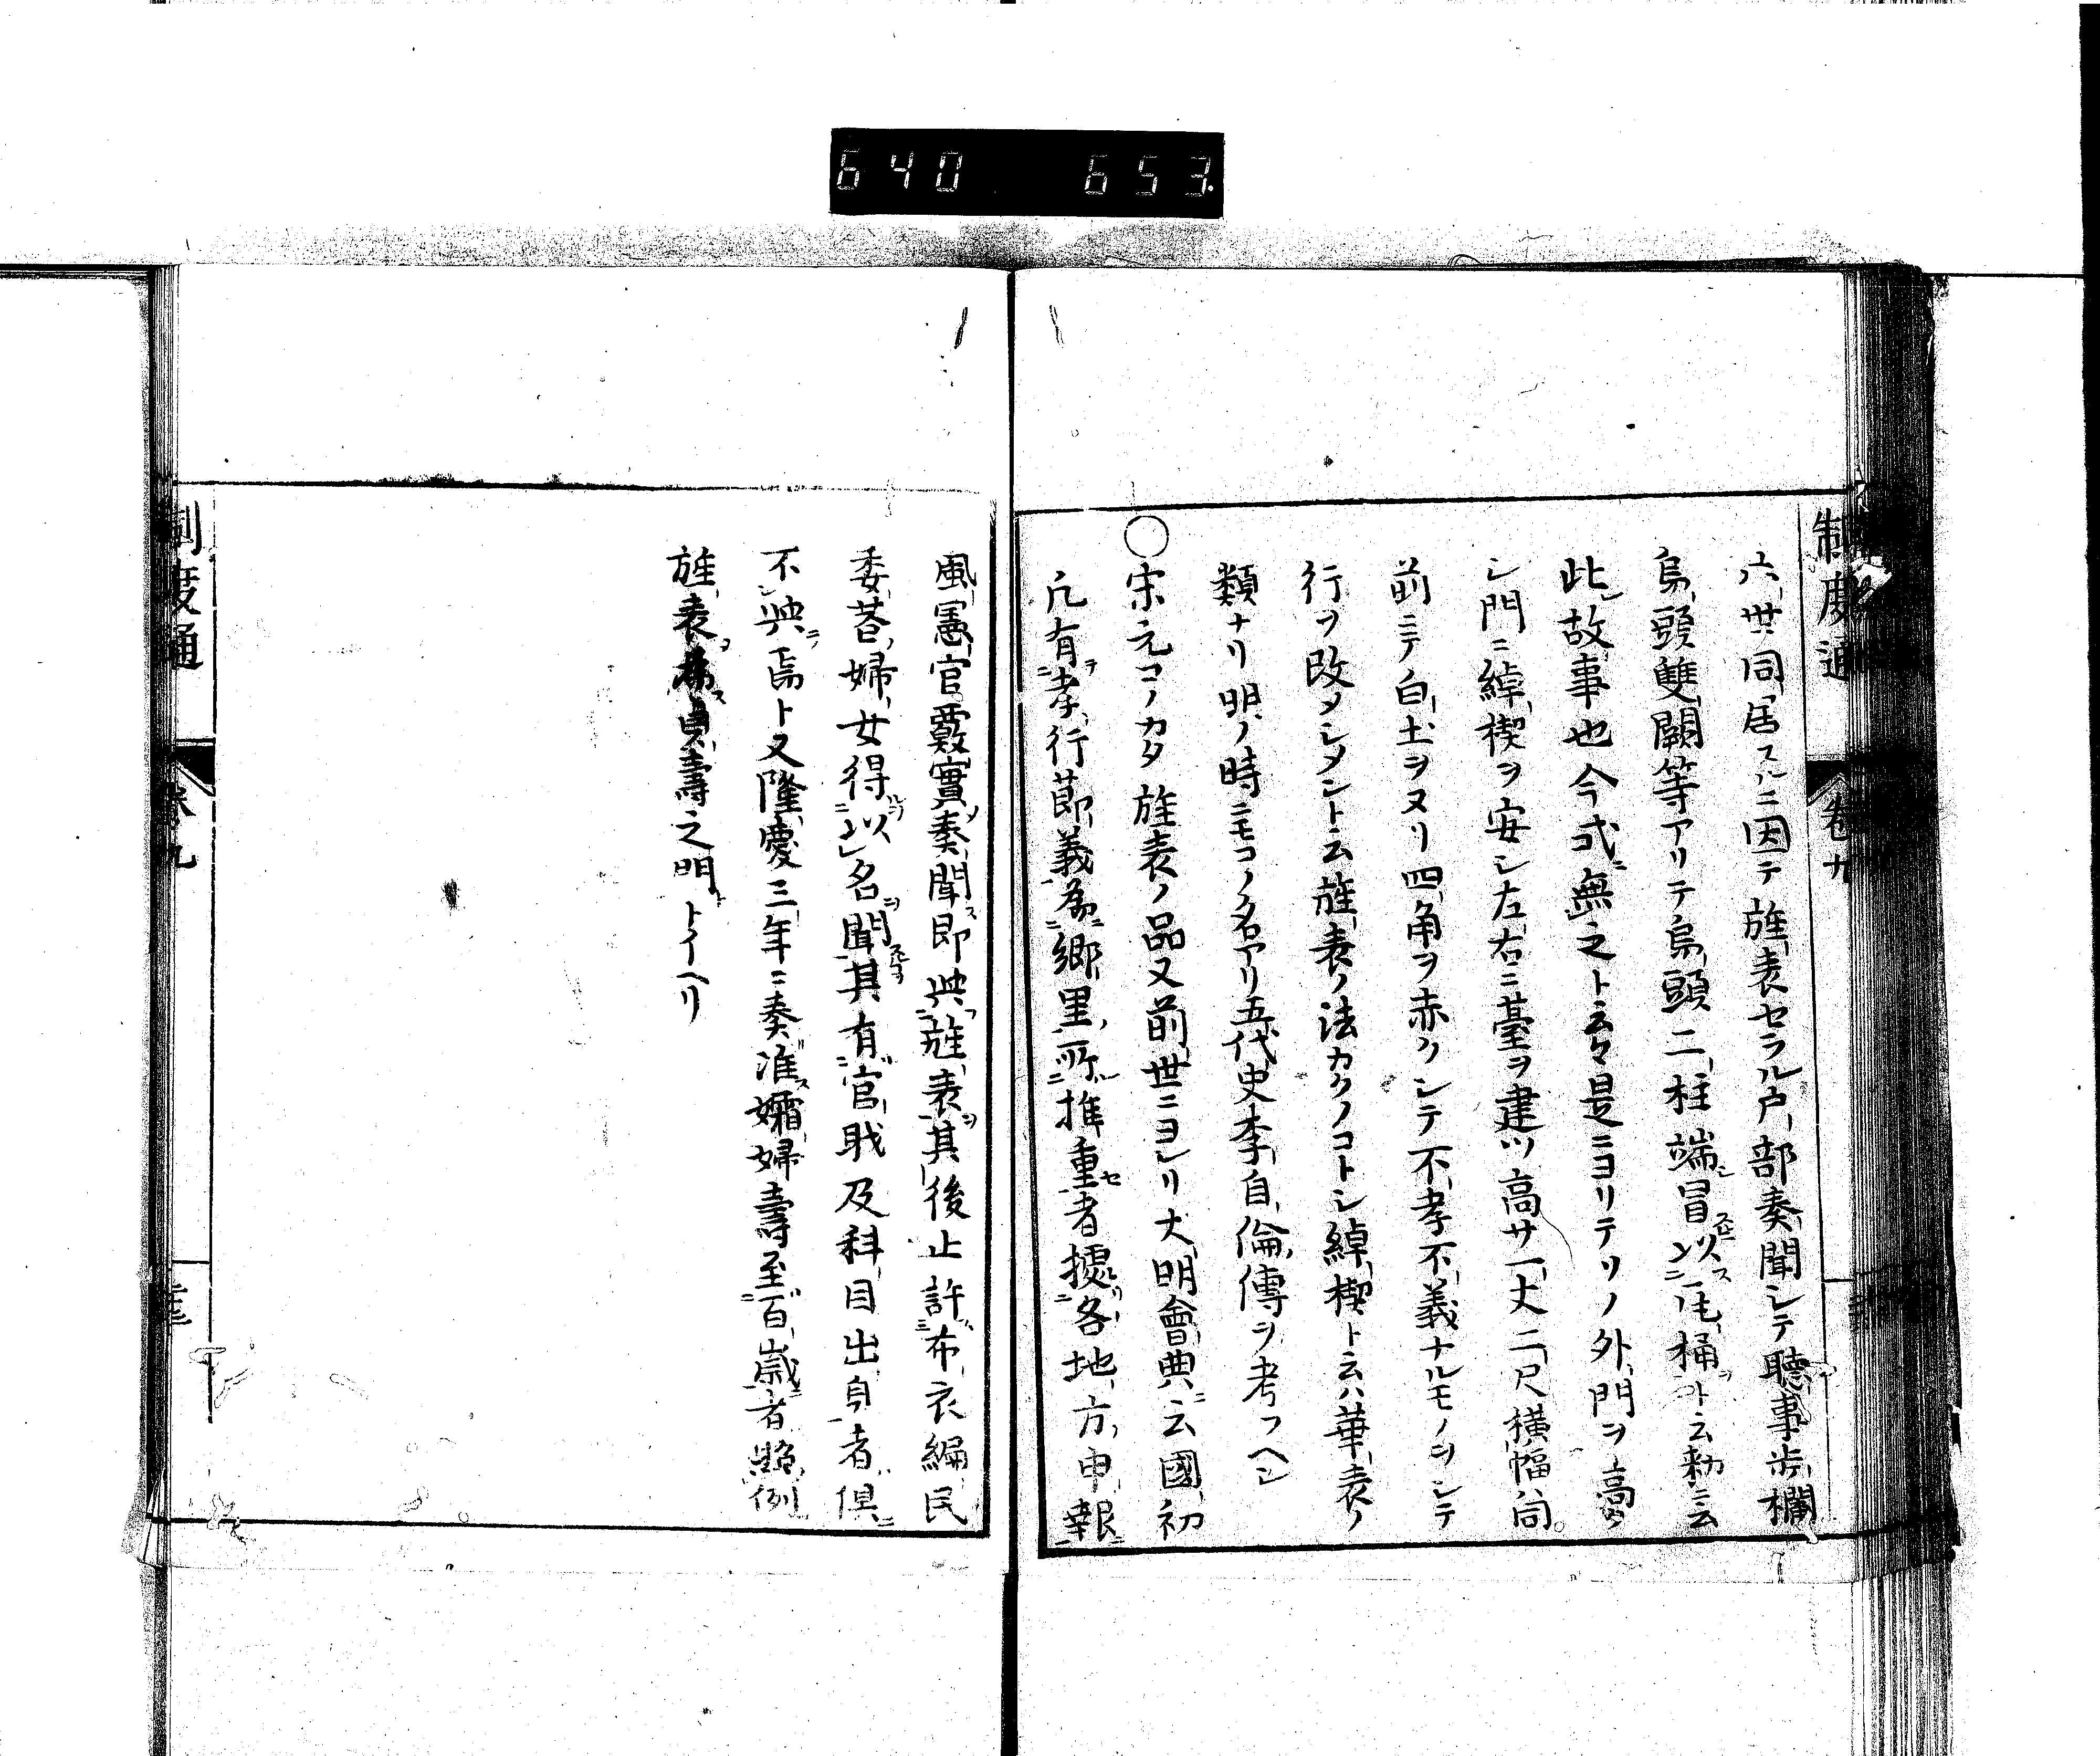 640 653
制度通 卷九
六世同居スルニ因テ旌表セラル戸部奏聞シテ聽事步欄
烏頭雙闕等アリテ烏頭二柱端冒以瓦桶ト云勅ニ云
此故事也今式無之ト云々是ニヨリテソノ外門ヲ高ク
シ門ニ綽楔ヲ安シ左右ニ臺ヲ建ツ高サ一丈二尺横幅同
前ニテ白土ヲヌリ四角ヲ赤クシテ不孝不義ナルモノヲシテ
行ヲ改メシメント云旌表ノ法カクノコトシ綽楔ト云ハ華表ノ
類ナリ明ノ時ニモコノ名アリ五代史李自倫傳ヲ考フヘシ
○宋元コノカタ旌表ノ品又前世ニヨレリ大明會典ニ云國初
凡有孝行節義為郷里所推重者據各地方申報
風憲官覈實奏聞即與旌表其後止許布衣編民
委荅婦女得以名聞其有官职及科目出身者俱
不與焉ト又隆慶三年ニ奏准孀婦壽至百歳者照例
旌表為貞壽之明トイヘリ
制度通 卷九